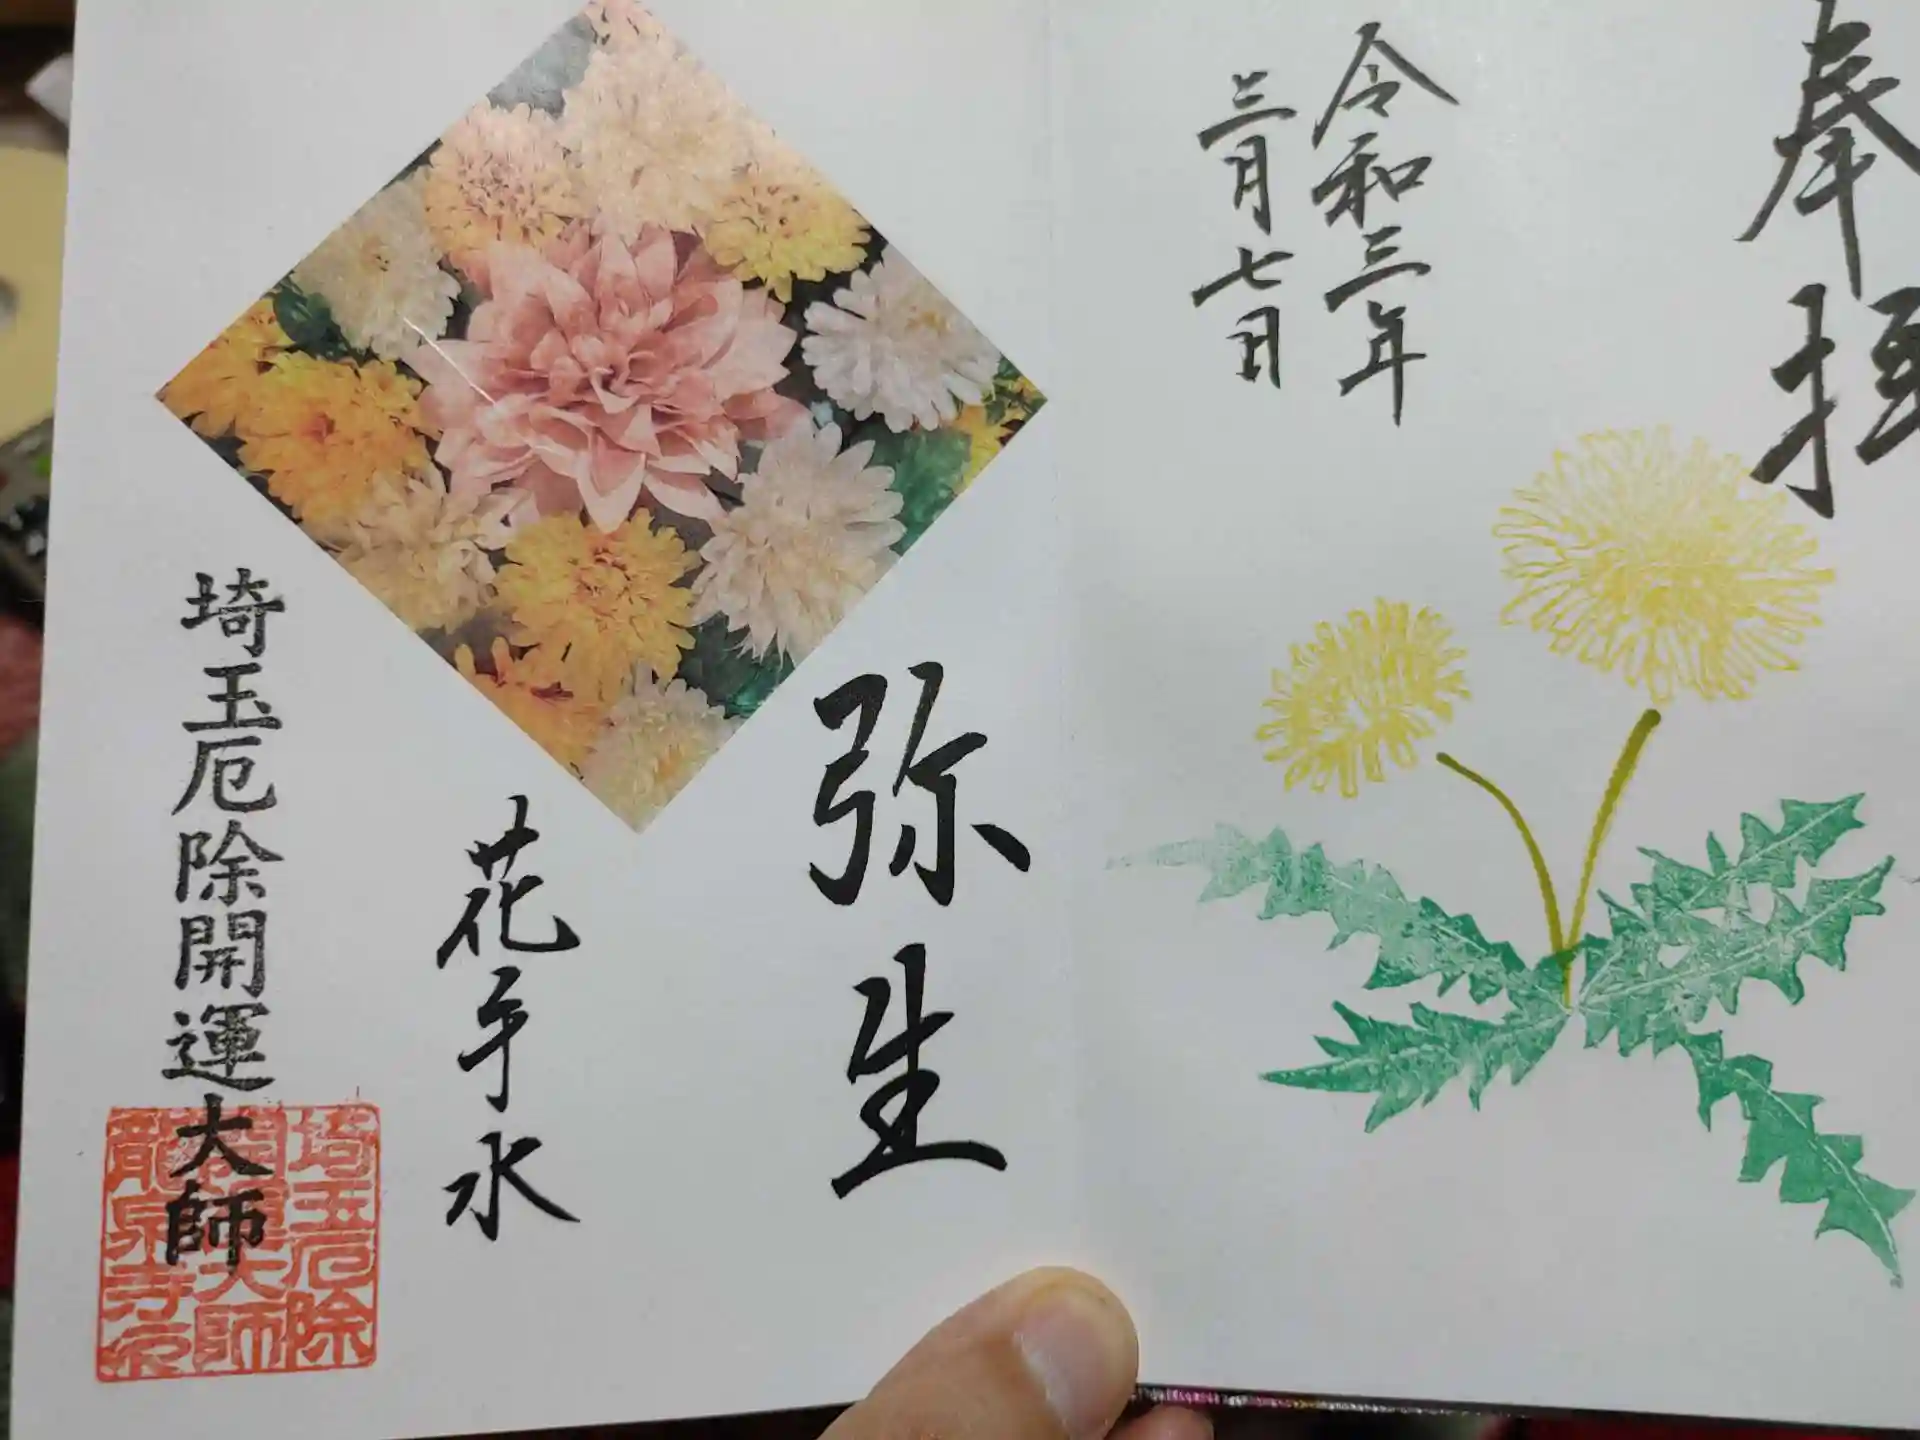 奉拝
令和三年
三月七日
弥生
花手水
埼玉厄除開運大師
埼玉厄除
開運大師
龍泉寺印